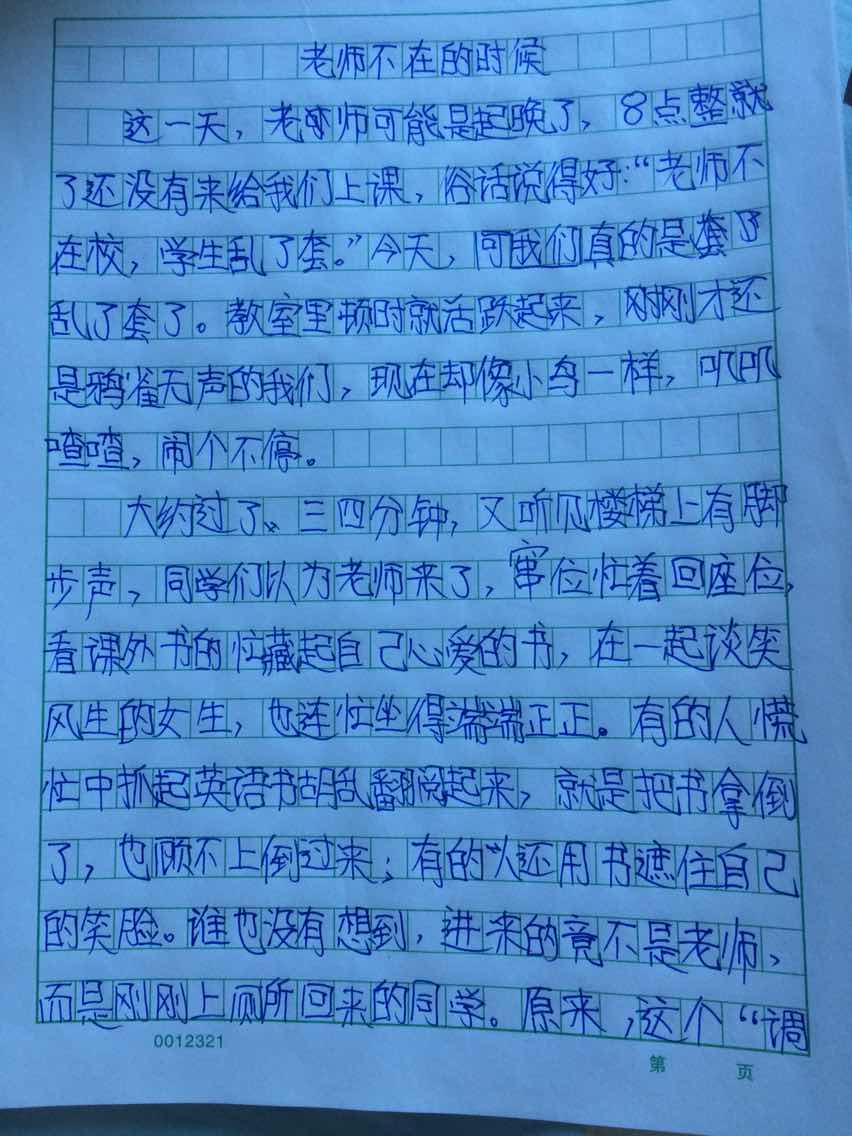 老师不在的时候
这一天，老师可能是起晚了，8点整就
了还没有来给我们上课，俗话说得好：“老师不
在校，学生乱了套。”今天，可我们真的是套了
乱了套了。教室里顿时就活跃起来，刚刚才还
是鸦雀无声的我们，现在却像小鸟一样，叽叽
喳喳，闹个不停。
大约过了、三四分钟，又听见楼梯上有脚
步声，同学们以为老师来了，窜位忙着回座位，
看课外书的忙藏起自己心爱的书，在一起谈笑
风生的女生，也连忙坐得端端正正。有的人慌
忙中抓起英语书胡乱翻阅起来，就是把书拿倒
了，也顾不上倒过来；有的人还用书遮住自己
的笑脸。谁也没有想到，进来的竟不是老师，
而是刚刚上厕所回来的同学。原来，这个“调
0012321
第 页